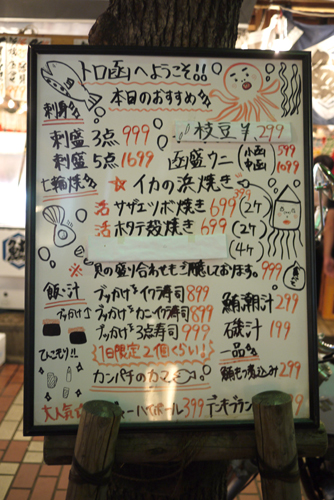 トロ函へようこそ!!
本日のおすすめ
刺身
枝豆 299
刺盛 3点 999
刺盛 5点 1699
函盛ウニ (小函 599
中函) 1099
七輪焼
☆ イカの浜焼き 299
活 サザエツボ焼き 699 (2ケ)
活 ホタテ殻焼き 699 (2ケ)
(4ケ)
※ 貝の盛り合わせもご用意しております。999
飯・汁
ブッかけイクラ寿司 899
ブッかけカニイクラ寿司 899
ブッかけ3点寿司 999
1日限定2個くらい!
ひこもり!!
鮪潮汁 299
磯汁 199
一品
鮪モツ煮込み 299
カンパチのカマ
大人気
ハイボール 399
デンキブラン